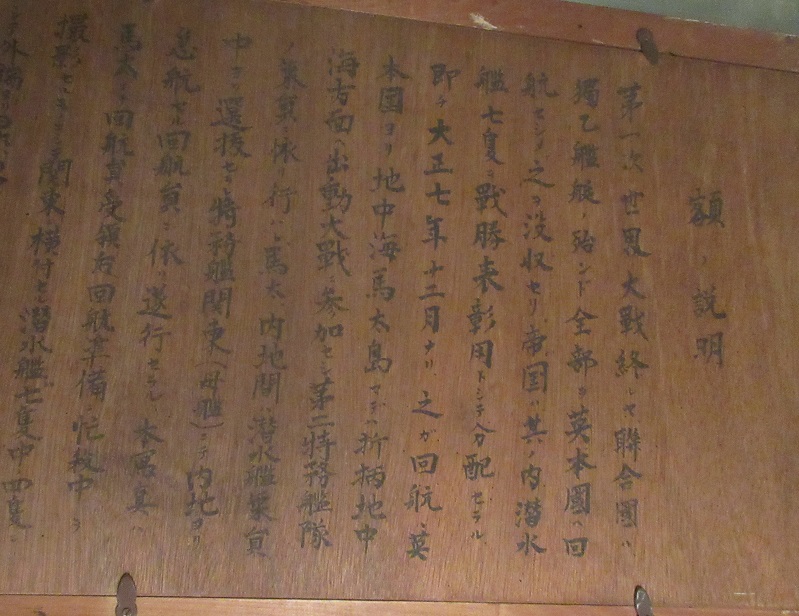 額ノ説明
第一次世界大戦終ルヤ聯合國ハ
獨乙艦艇ノ殆ンド全部ヲ英本國ヘ回
航セシメ之ヲ没収セリ帝国ハ其ノ内潜水
艦七隻ヲ戦勝表彰用トシテ分配セラル
即チ大正七年十二月ナリ之ガ回航ハ英
本国ヨリ地中海馬太島マデハ折柄地中
海方面ヘ出動大戦ニ参加セシ第二特務艦隊
ノ乗員ニ依リ行ハレ馬太、内地間ハ潜水艦乗員
中ヨリ選抜セラレ特務艦関東(母艦)ニテ内地ヨリ
急航セル回航員ニ依リ遂行セラル 本寫真ハ
馬太ニテ回航員受領后回航準備ニ忙殺中ヲ
撮影セルモノニシテ関東横付セル潜水艦七隻中四隻ニ
外端ヨリ